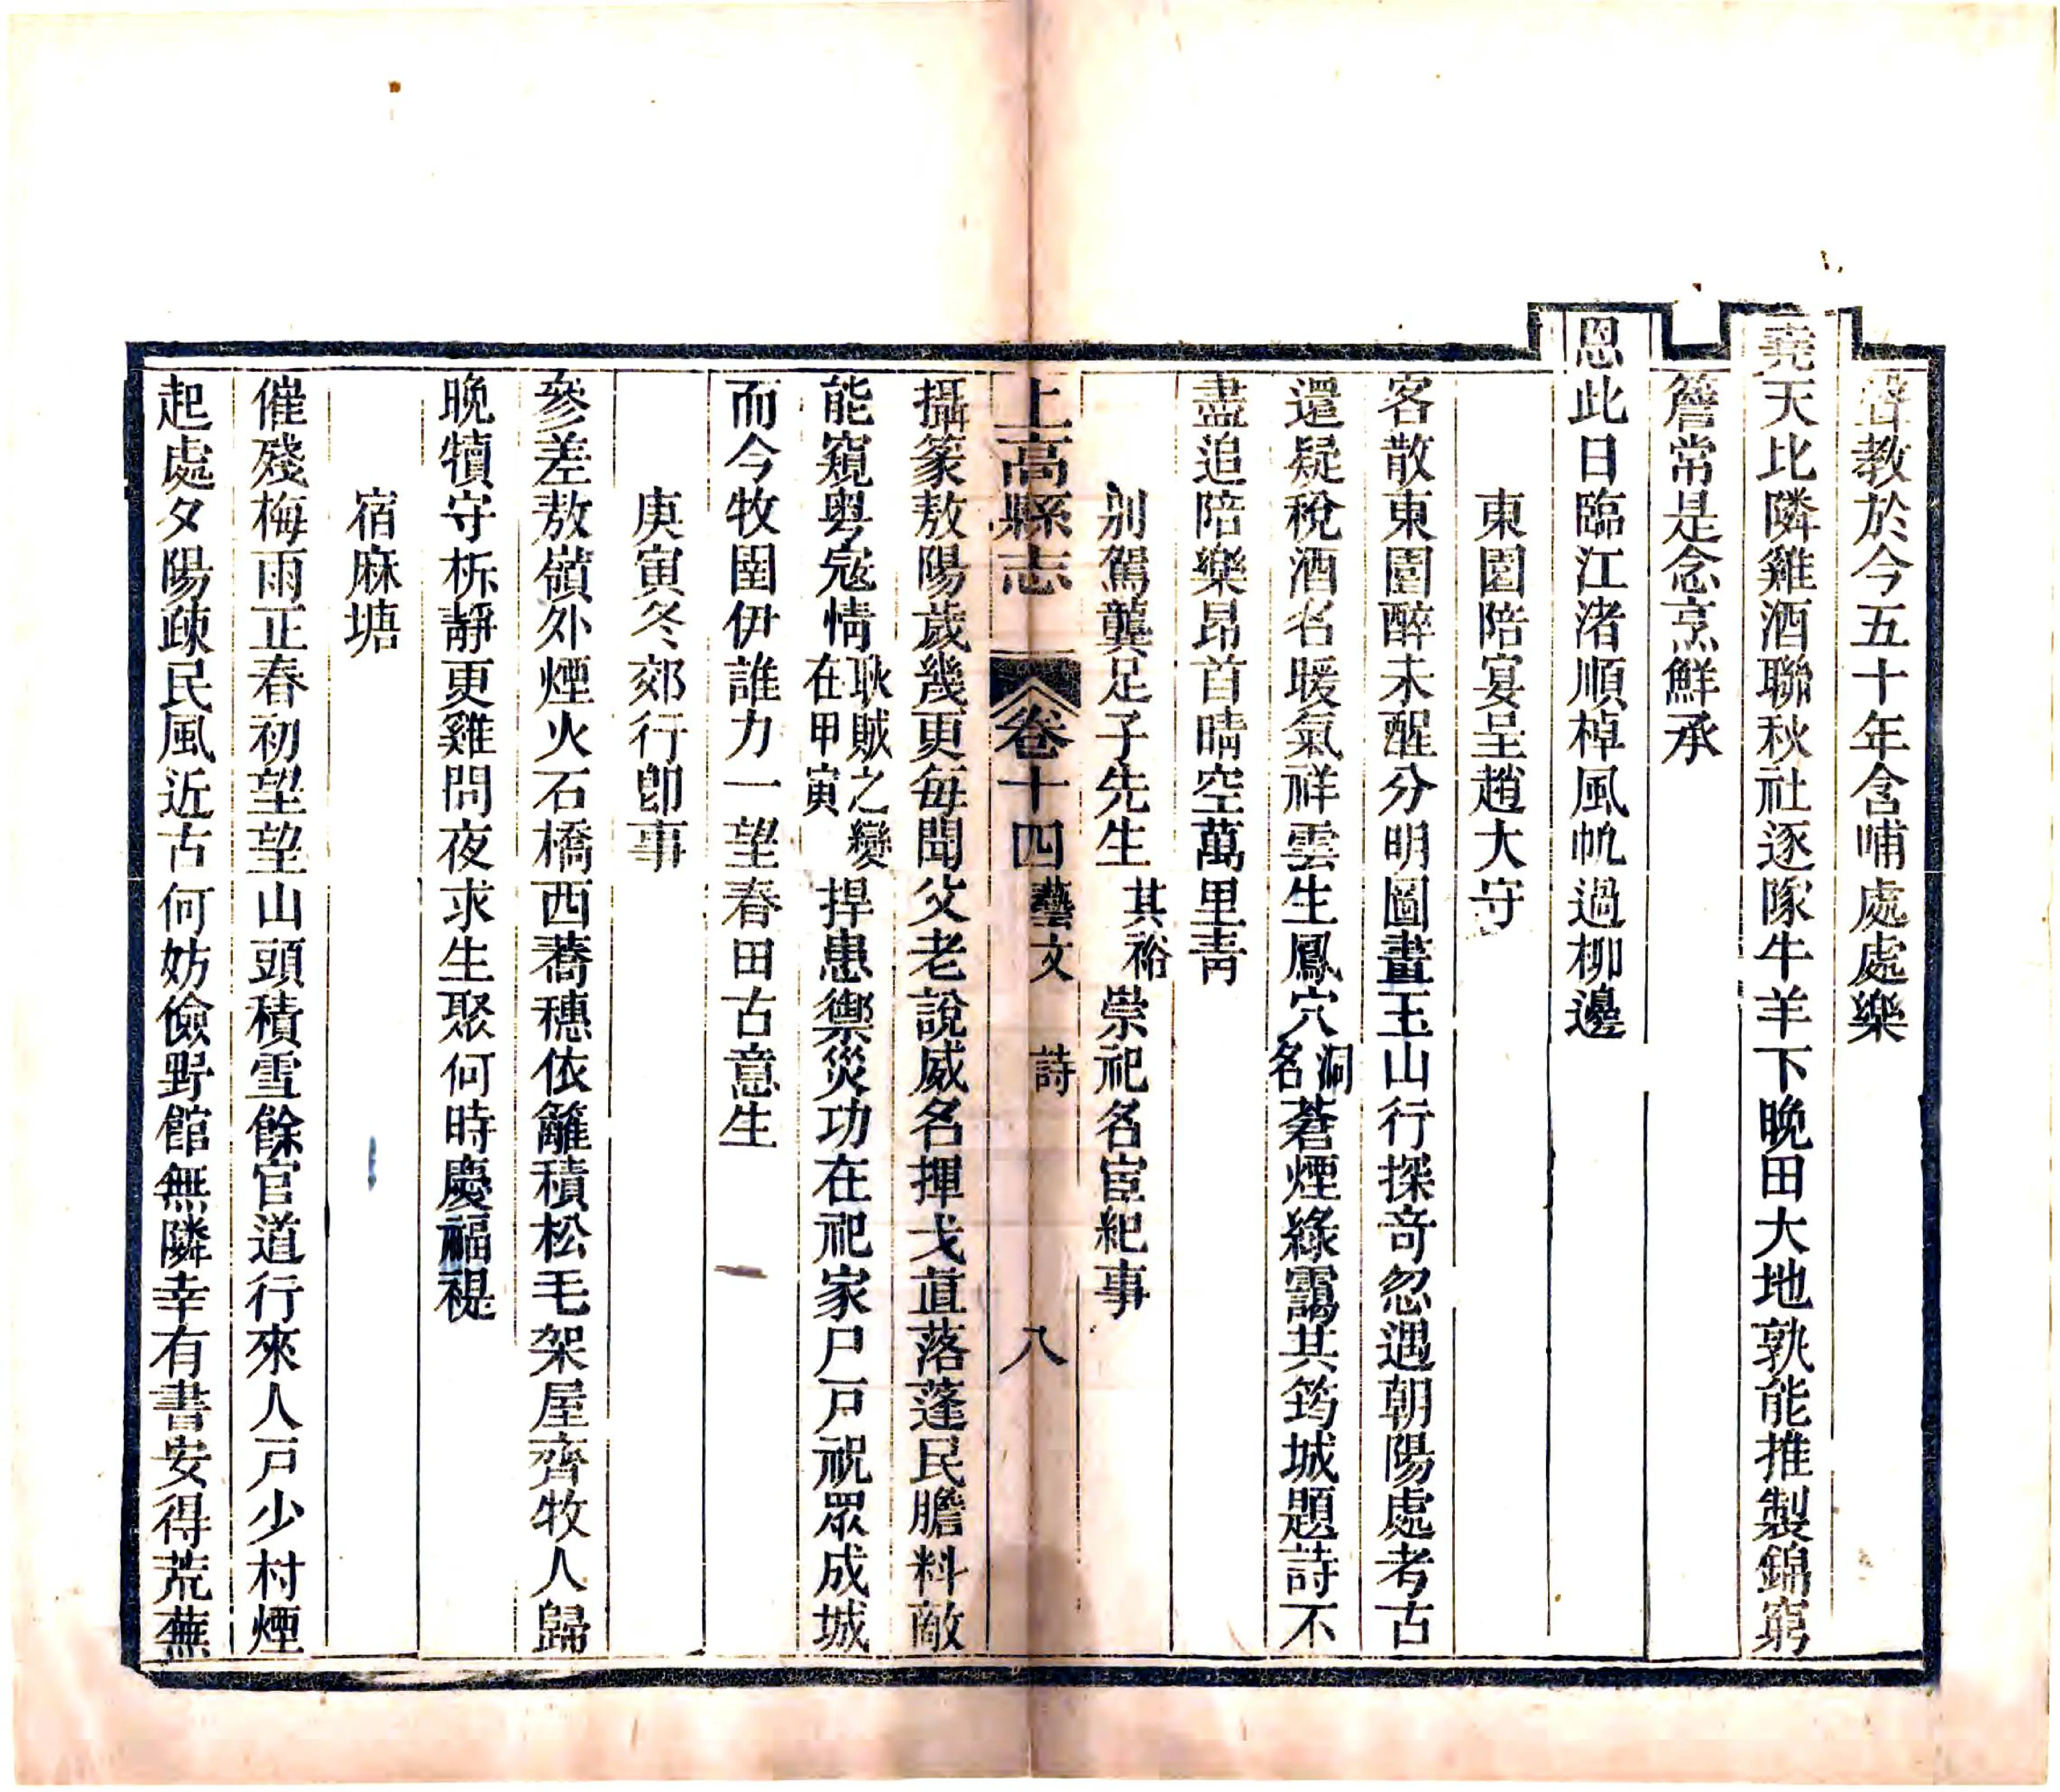 聲教於今五十年含哺處處樂
堯天比隣雞酒聯秋社逐隊牛羊下晚田大地孰能推製錦窮
簷常是念烹鮮承
恩此日臨江渚順棹風帆過柳邊
東園陪宴呈趙大守
客散東園醉未醒分明圖畫玉山行探奇忽遇朝陽處考古
還疑稅酒名暖氣祥雲生鳳穴洞名蒼煙綠靄其筠城題詩不
盡追陪樂昂首晴空萬里靑
別駕龔足子先生其裕崇祀名宦紀事
上高縣志 卷十四 藝文 詩 八
攝篆敖陽歲幾更每聞父老說威名揮戈直落蓬民膽料敵
能窺粤寇情耿賊之變在甲寅捍患禦災功在祀家尸戸祝眾成城
而今牧圉伊誰力一望春田古意生
庚寅冬郊行卽事
參差敖嶺外煙火石橋西蕎穗依籬積松毛架屋齊牧人歸
晚犢守柝靜更雞問夜求生聚何時慶福禔
宿麻塘
催殘梅雨正春初望望山頭積雪餘官道行來人戸少村煙
起處夕陽疎民風近古何妨儉野館無隣幸有書安得荒蕪